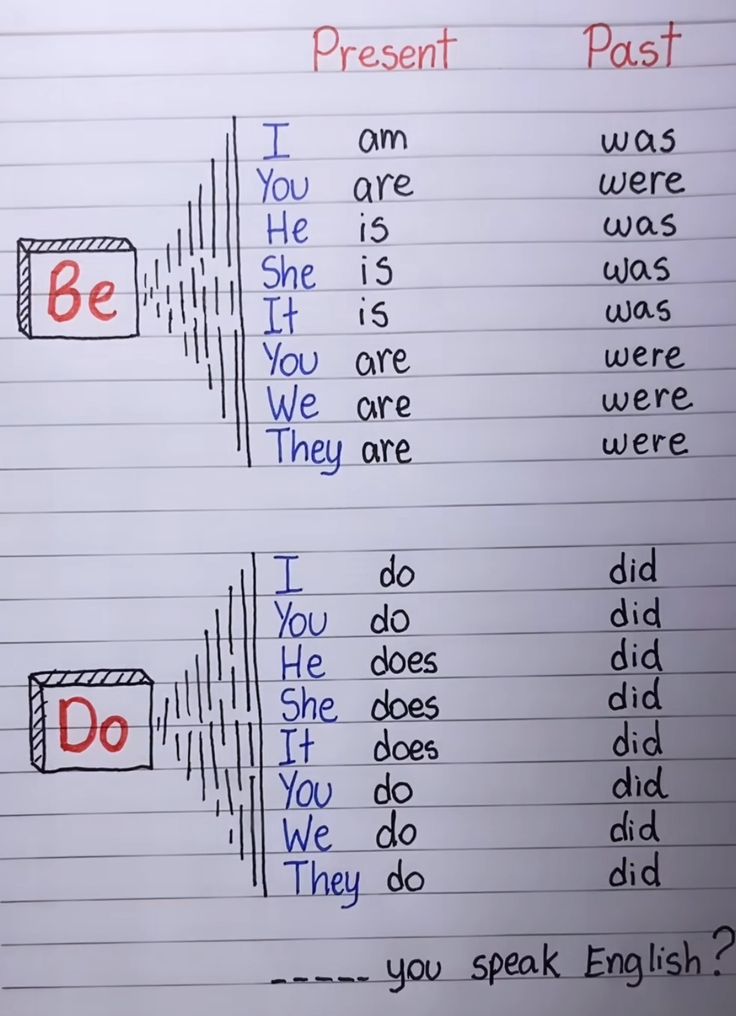 Present Past
I am was
You are were
He is was
She is was
Be
It is was
You are were
We are were
They are were
I do did
You do did
He does did
She does did
Do
It does did
You do did
We do did
They do did
----- you speak English?